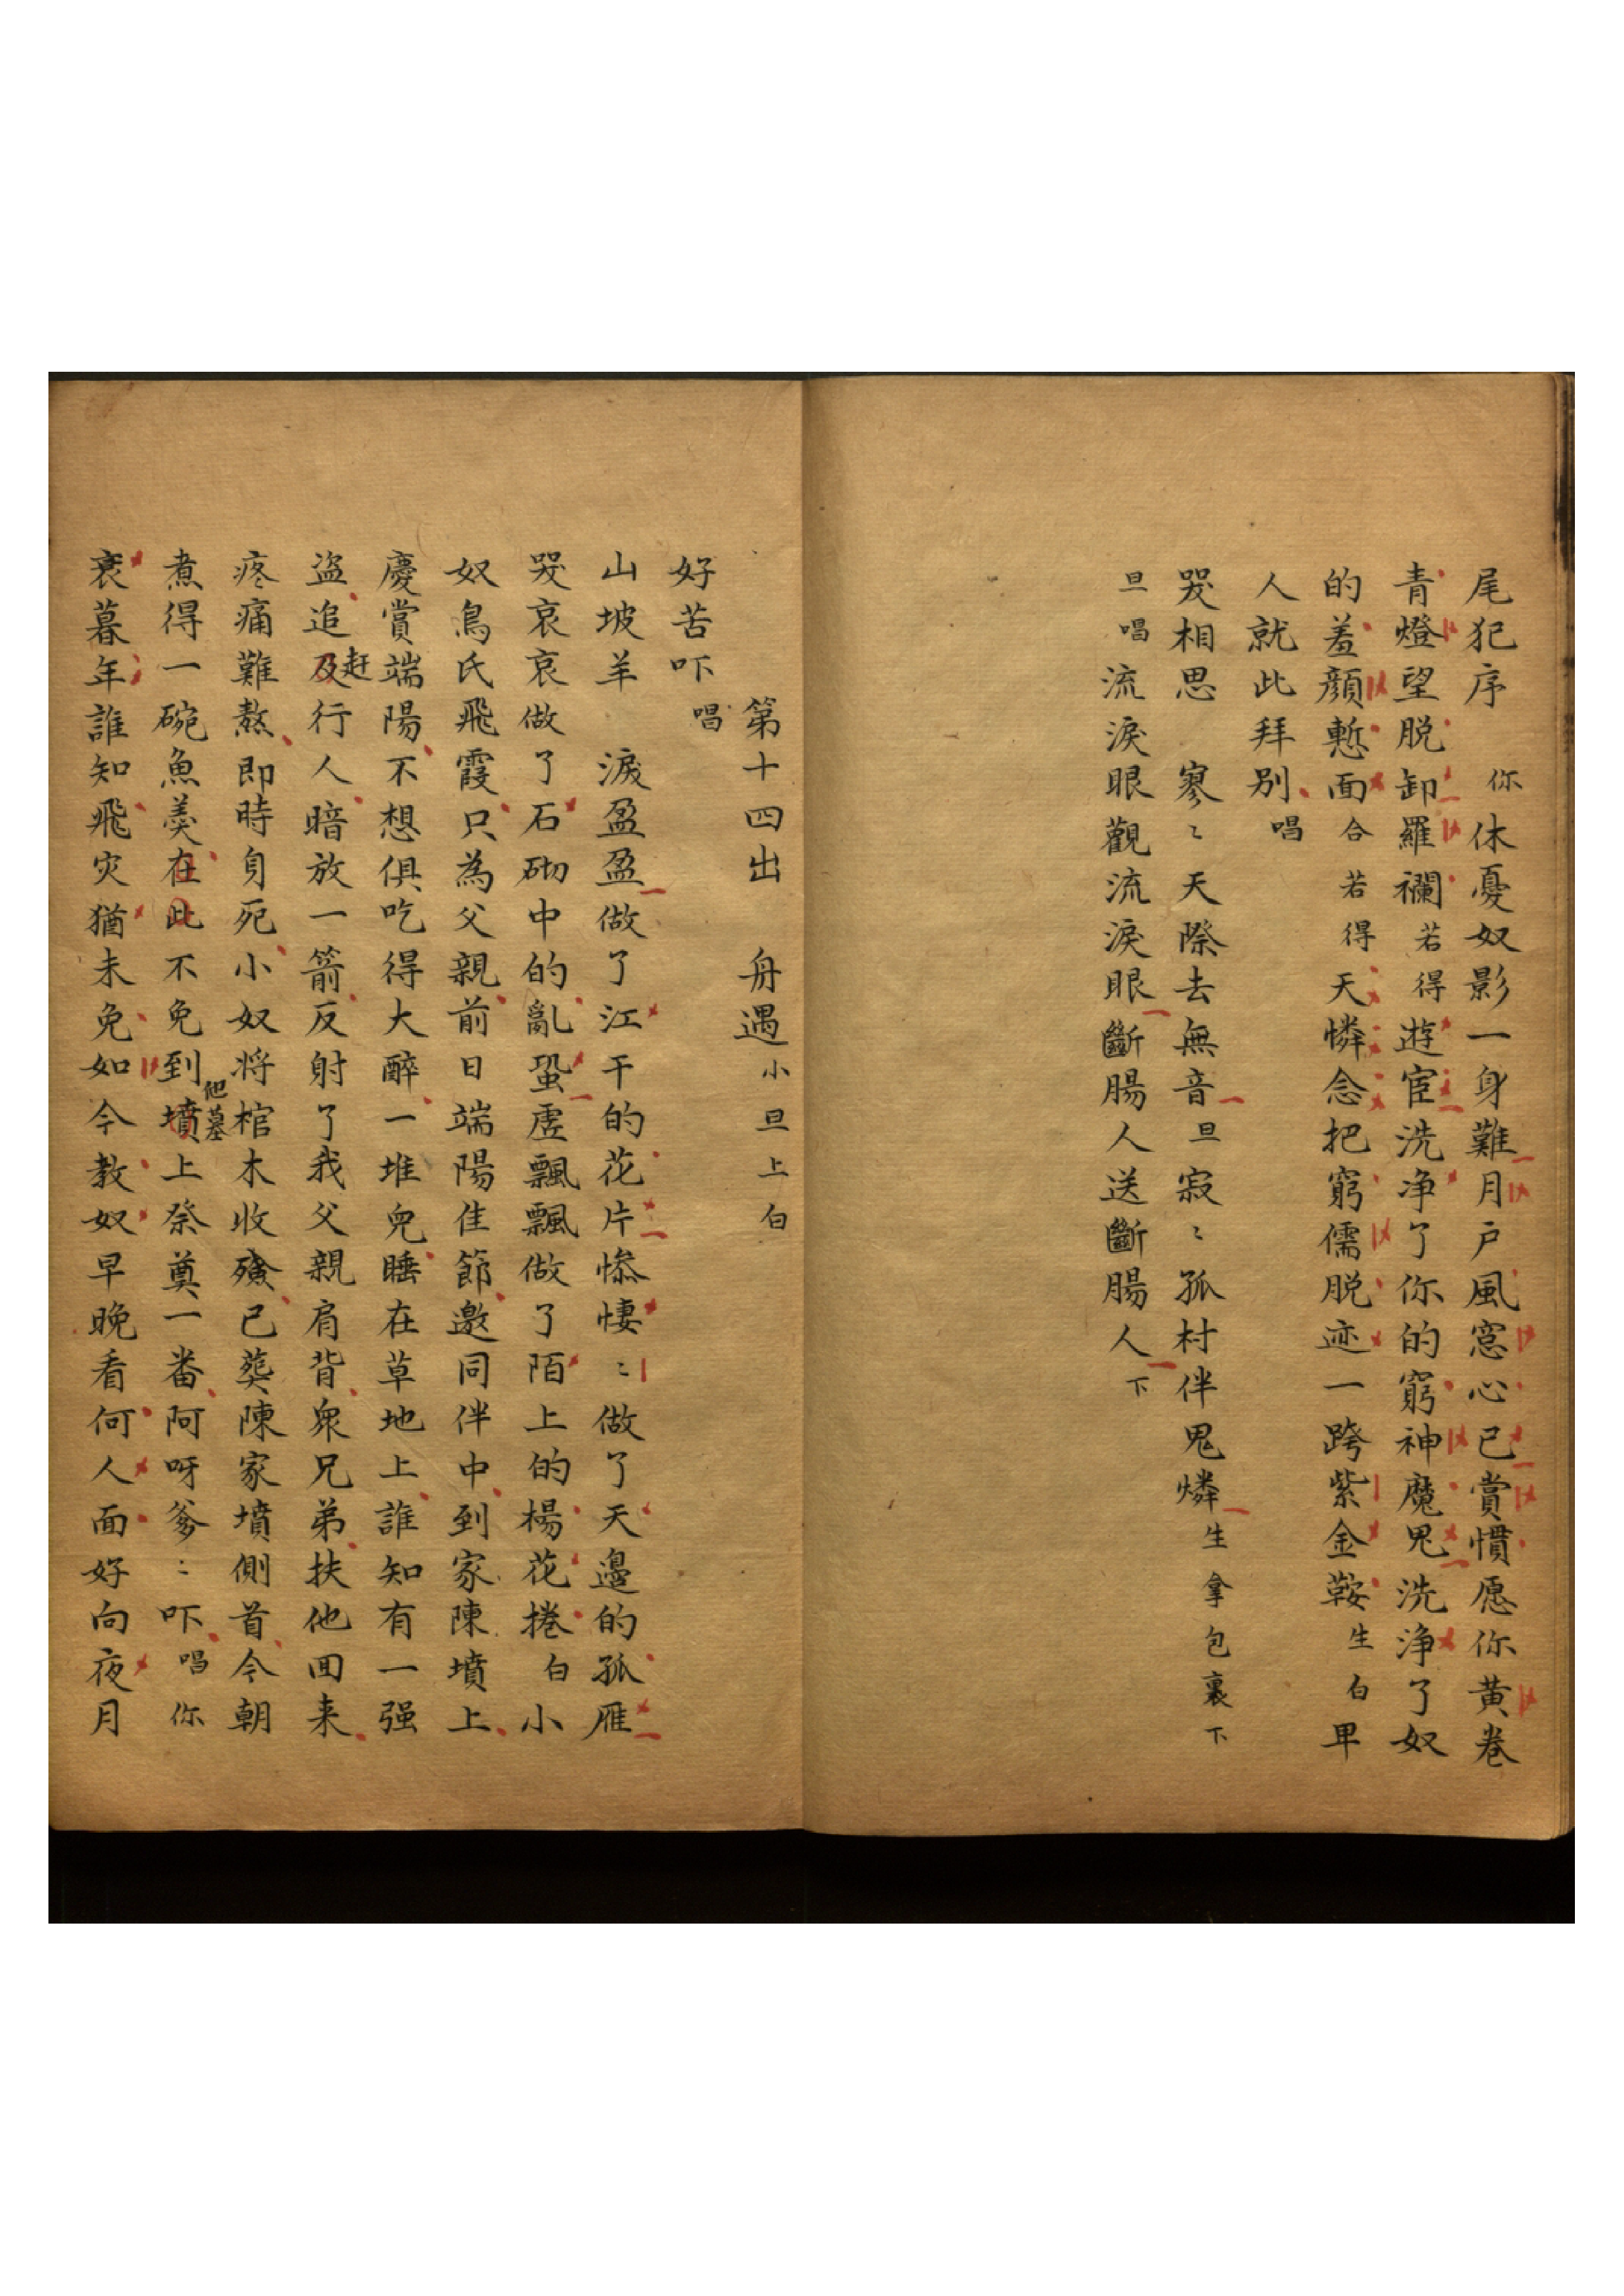 尾犯序　你休憂奴影一身難月戶風窓心已賞慣愿你黃卷
青燈望脫卸羅襴若得遊宦洗净了你的窮神魔鬼洗净了奴
的羞顔慙面合若得天憐念把窮儒脫迹一跨紫金鞍生白卑
人就此拜別唱
哭相思　寥〻天際去無音旦寂〻孤村伴鬼燐生拿包裹下
旦唱流淚眼觀流淚眼斷腸人送斷腸人下
第十四出　舟遇小旦上白
好苦吓唱
山坡羊　淚盈盈做了江干的花片慘悽〻做了天邉的孤雁
哭哀哀做了石砌中的亂蛩虛飄飄做了陌上的楊花捲白小
奴鳥氏飛霞只為父親前日端陽佳節邀同伴中到家陳墳上
慶賞端陽不想俱吃得大醉一堆兒睡在草地上誰知有一强
盜追及赶行人暗放一箭反射了我父親肩背衆兄弟扶他回来
疼痛難熬即時身死小奴将棺木收殮已葬陳家墳側首今朝
煮得一碗魚羹在此不免到他墳墓上祭奠一番阿呀爹〻吓唱你
衰暮年誰知飛灾猶未免如今教奴早晚看何人面好向夜月